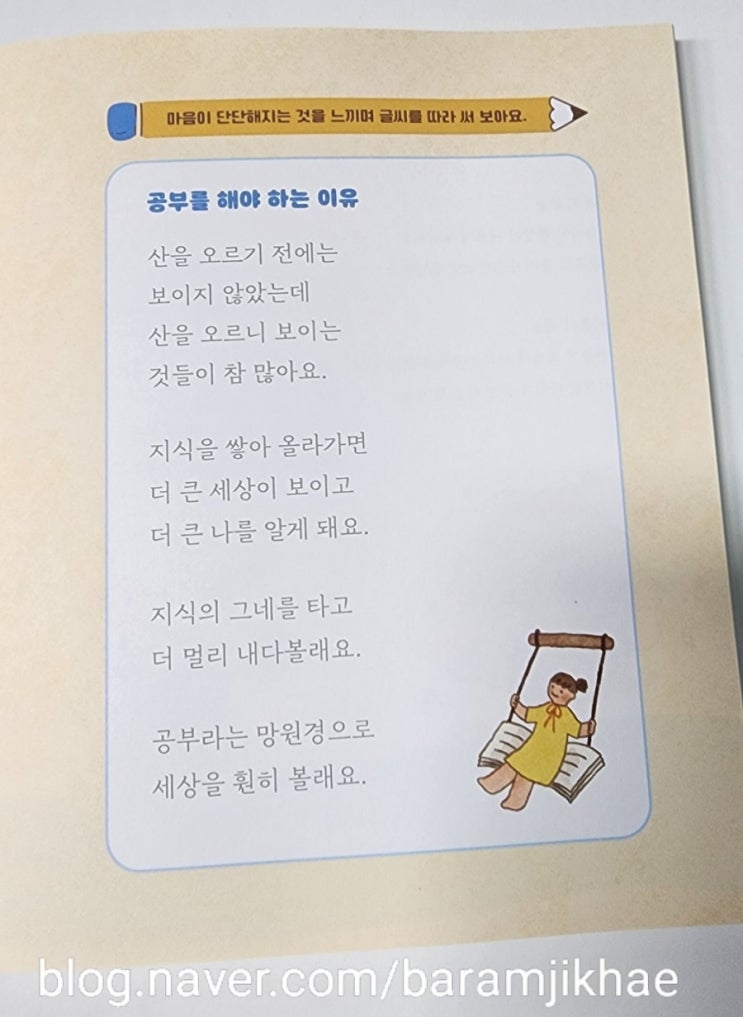 마음이 단단해지는 것을 느끼며 글씨를 따라 써 보아요.
공부를 해야 하는 이유
산을 오르기 전에는
보이지 않았는데
산을 오르니 보이는
것들이 참 많아요.
지식을 쌓아 올라가면
더 큰 세상이 보이고
더 큰 나를 알게 돼요.
지식의 그네를 타고
더 멀리 내다볼래요.
공부라는 망원경으로
세상을 훤히 볼래요.
blog.naver.com/baramjikhae